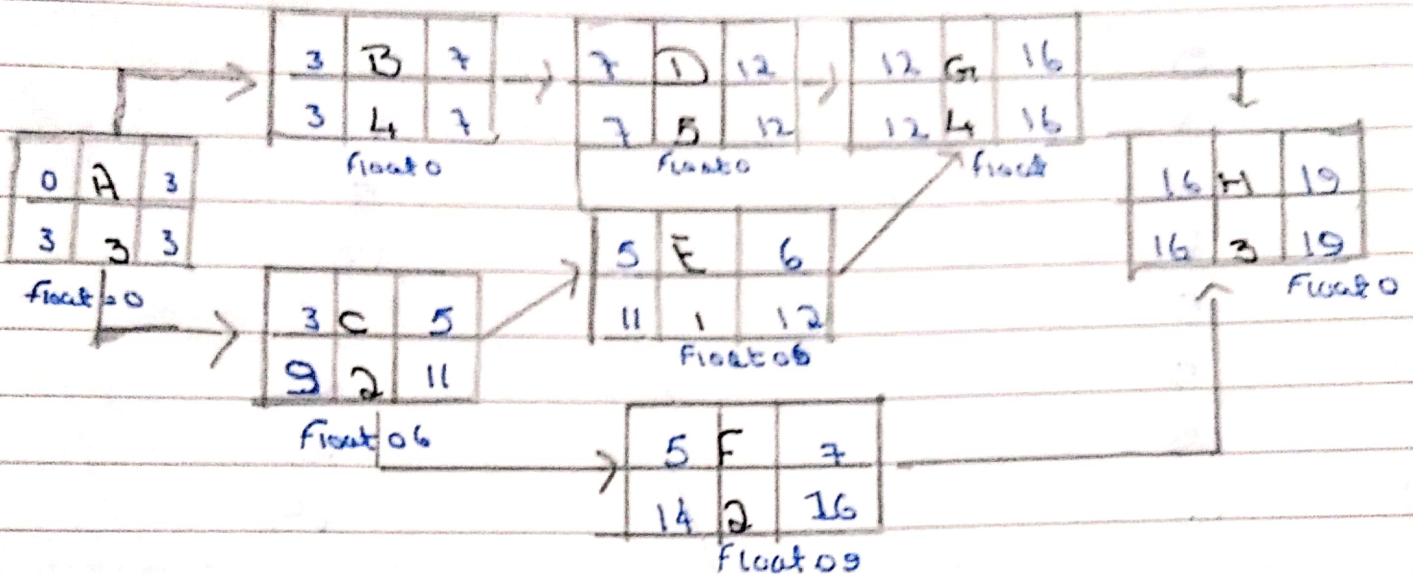 3 B 7
3 4 7
Float 0
7 D 12
7 5 12
Float 0
12 G 16
12 4 16
Float
0 A 3
3 3 3
Float = 0
16 H 19
16 3 19
Float 0
3 C 5
9 2 11
Float 06
5 E 6
11 1 12
Float 06
5 F 7
14 2 16
Float 09